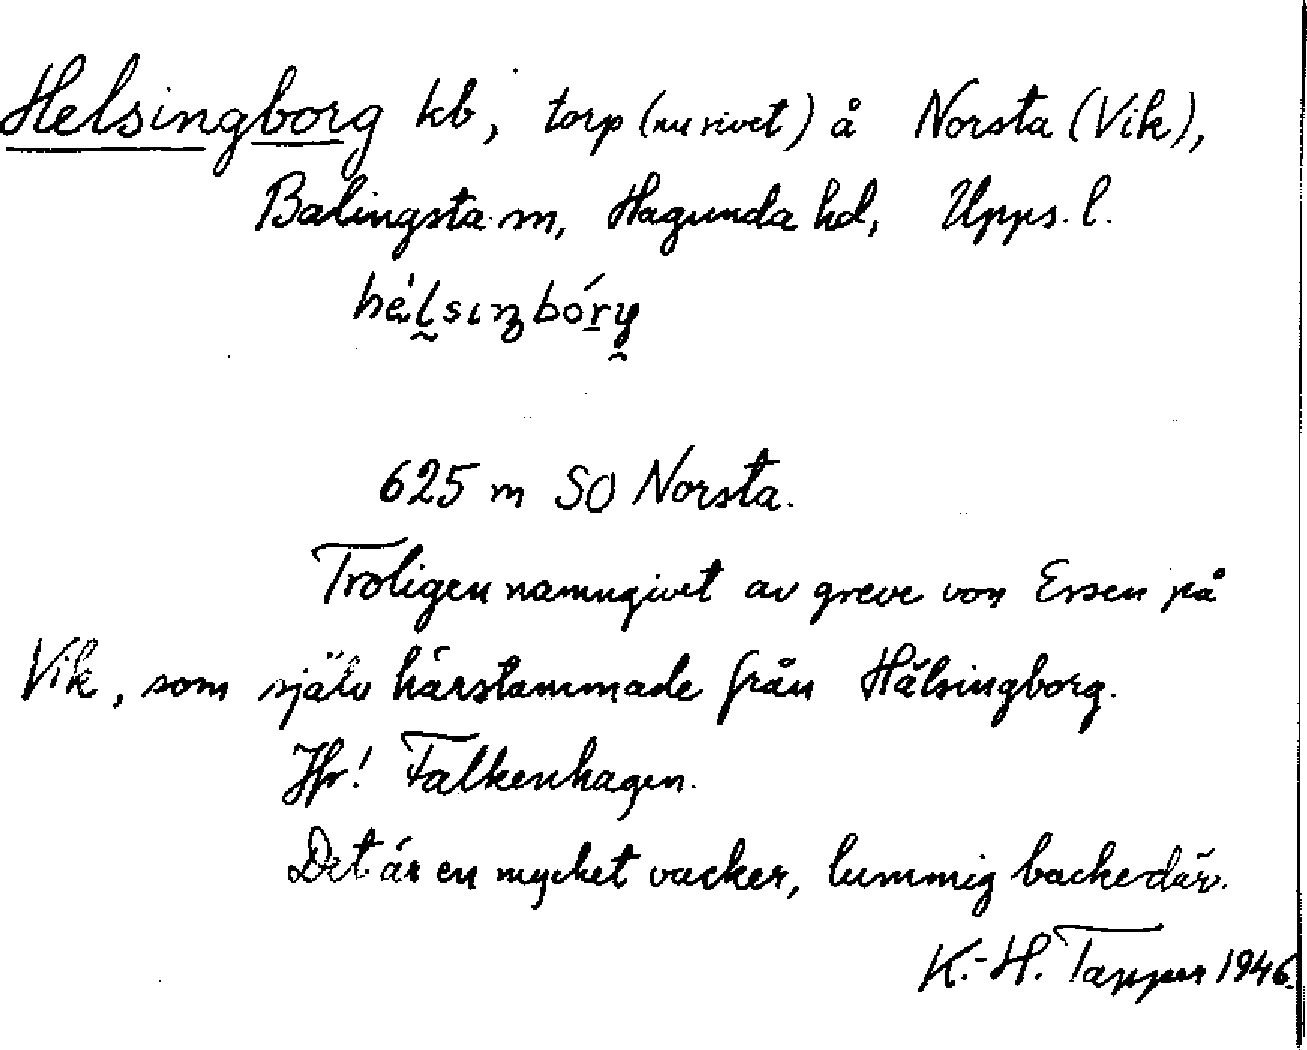 Helsingborg kb, torp (nu rivet) å Norsta (Vik),
Balingsta sn, Hagunda hd, Upps. l.
625 m SO Norsta.
Troligen namngivet av greve von Essen på
Vik, som själv härstammade från Hälsingborg.
Jfr! Falkenhagen.
Det är en mycket vacker, lummig backe där.
K.-H. Tapper 1946.